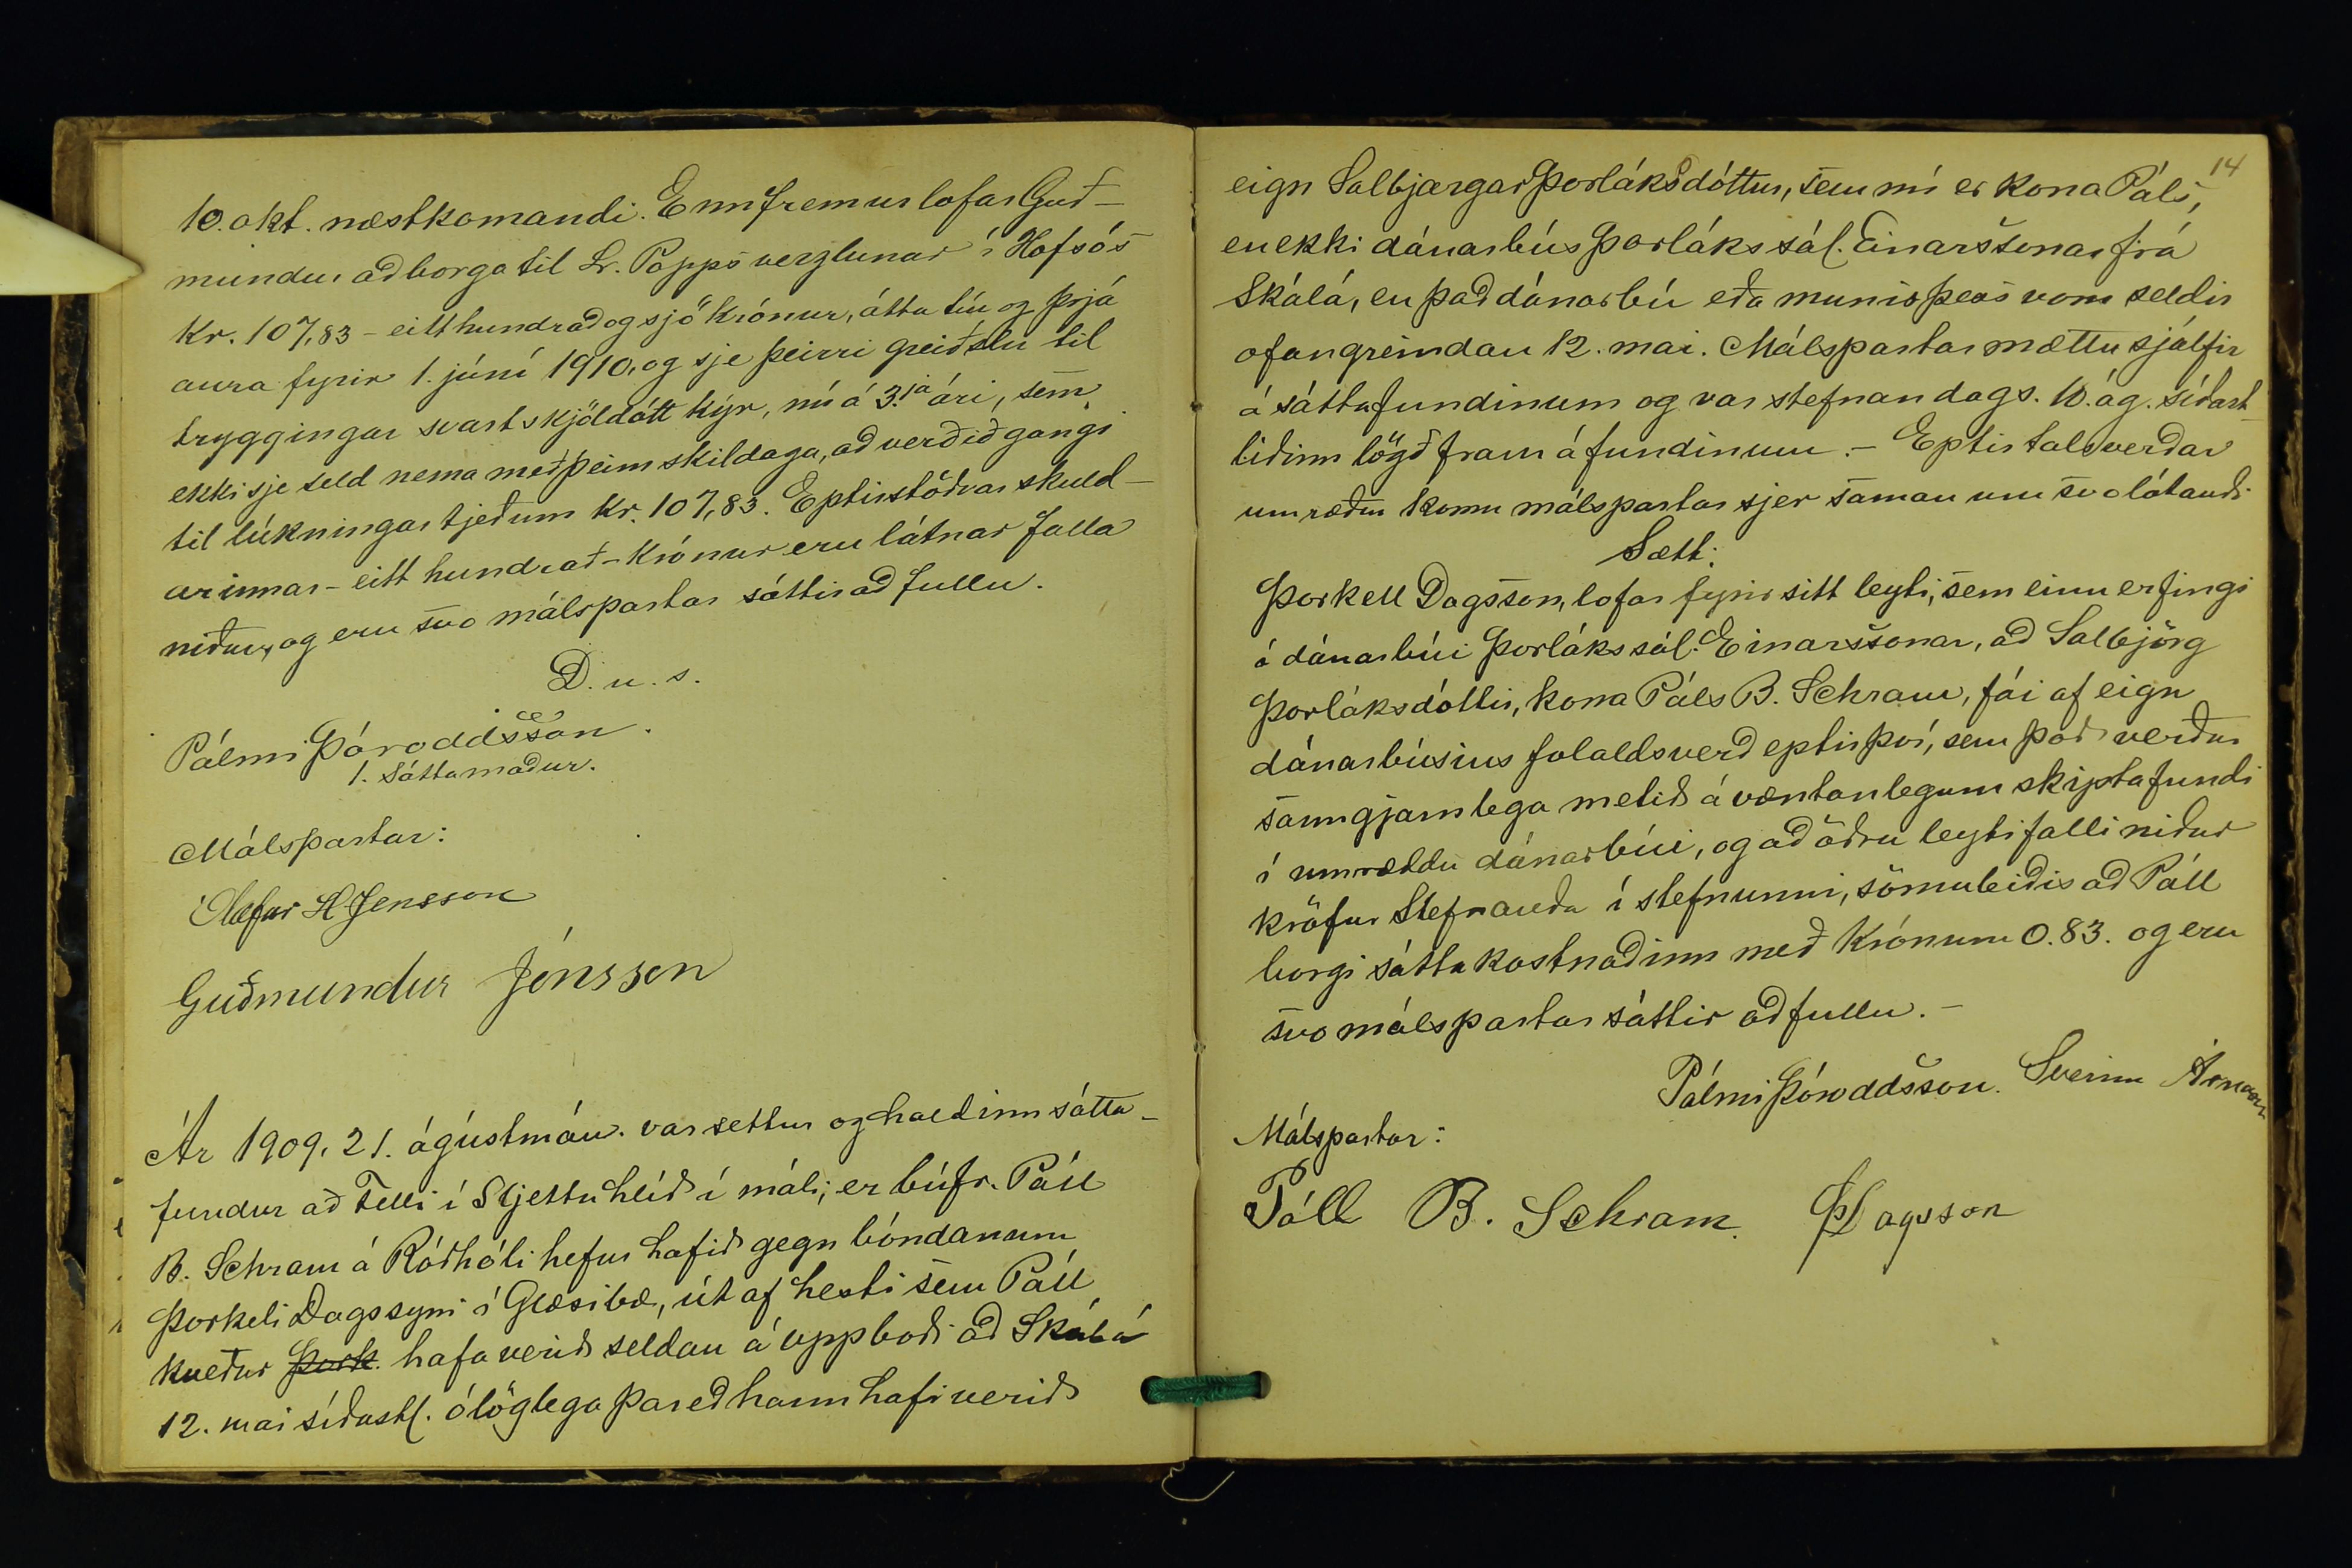 10. okt. næstkomandi. Ennfremur lofar Guð-
mundur að borga til Kr. Popps verzlunar í Hofsós
Kr. 107,83 - eitt hundrað og sjö krónur, átta tíu og þrjá
aura fyrir 1. júní 1910, og sje þeirri greiðslu til
tryggingar svartskjöldótt kýr, nú á 3.ja ári, sem
ekki sje seld nema með þeim skildaga, að verðið gangi
til lúkningar tjeðum Kr. 107,83. Eptirstöðvar skuld-
arinnar - eitt hundrað - Krónur eru látnar falla
niður, og eru svo málspartar sáttir að fullu.
D. u. s.
Pálmi Þóroddsson.
1. Sáttamaður.
Málspartar:
Ólafur H Jensson
Guðmundur Jónsson
Ár 1909, 21. ágústmán. var settur og haldinn sátta-
fundur að Felli í Sljettuhlíð í máli, er búfr. Páll
B. Schram á Róðhóli hefur hafið gegn bóndanum
Þorkeli Dagssyni í Glæsibæ, út af hesti sem Páll
kveður Þork. hafa verið seldan á uppboði að Skálá
12. mai síðastl. ólöglega þar eð hann hafi verið
14
eign Salbjargar Þorláksdóttur, sem nú er kona Páls,
en ekki dánarbús Þorláks sál. Einarssonar frá
Skálá, en það dánarbú eða munir þess voru seldir
ofangreindan 12. mai. Málspartar mættu sjálfir
á sáttafundinum og var stefnan dags. 10. ág. síðast-
liðinn lögð fram á fundinum. - Eptir talsverðar
umræður komu málspartar sjer saman um svolátandi
Sætt:
Þorkell Dagsson, lofar fyrir sitt leyti, sem einn erfingi
á dánarbúi Þorláks sál. Einarssonar, að Salbjörg
Þorláksdóttir, kona Páls B. Schram, fái af eign
dánarbúsins folaldsverð eptir því, sem það verður
sanngjarnlega metið á væntanlegum skiptafundi
í umræddu dánarbúi, og að öðru leyti falli niður
kröfur Stefnanda í stefnunni, sömuleiðis að Páll
borgi sáttakostnaðinn með Krónum 0.83. og eru
svo málspartar sáttir að fullu. -
Pálmi Þóroddsson. Sveinn Árnason
Málspartar:
Páll B. Schram. Þ Dagsson